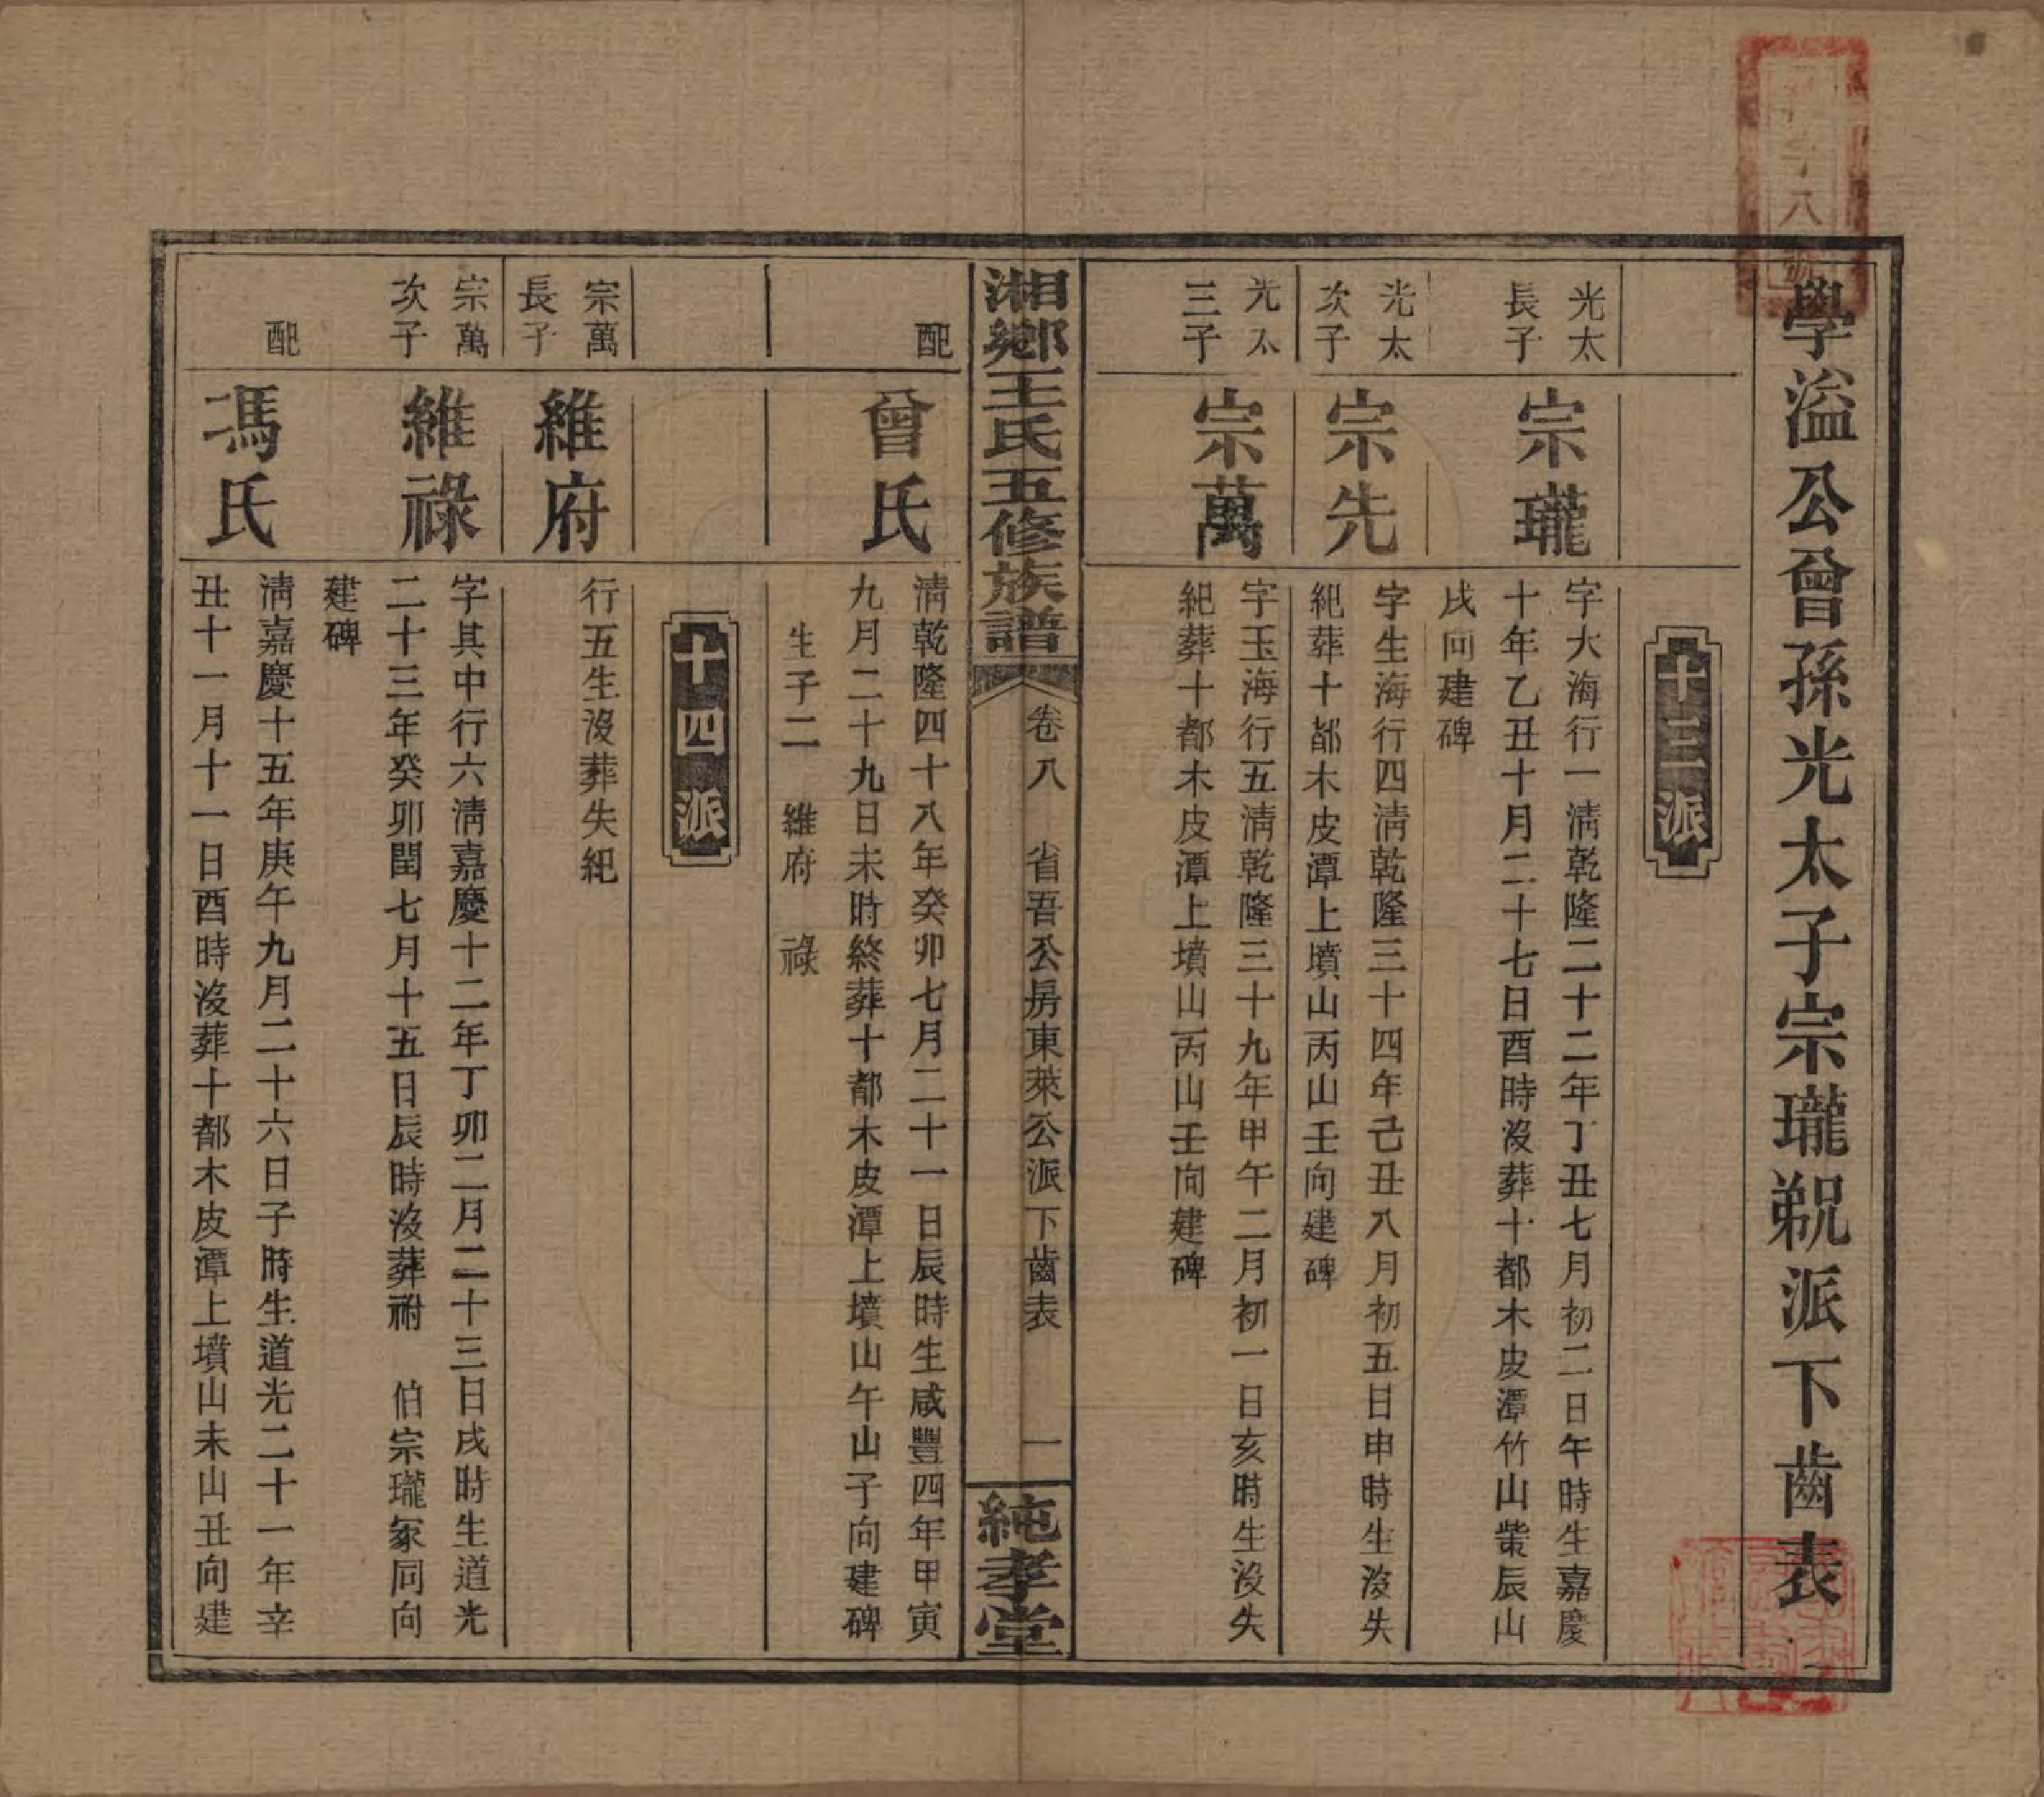 學溢公曾孫光太子宗瓏祝派下齒表
十三派
光太
長子
宗瓏
字大海行一淸乾隆二十二年丁丑七月初二日午時生嘉慶
十年乙丑十月二十七日酉時沒葬十都木皮潭竹山柴辰山
戌向建碑
光太
次子
宗先
字生海行四淸乾隆三十四年己丑八月初五日申時生沒失
紀葬十都木皮潭上墳山丙山壬向建碑
光太
三子
宗萬
字玉海行五淸乾隆三十九年甲午二月初一日亥時生沒失
紀葬十都木皮潭上墳山丙山壬向建碑
湘鄉王氏五修族譜
卷八 省吾公房東萊公派下齒表 一
純孝堂
配
曾氏
淸乾隆四十八年癸卯七月二十一日辰時生咸豐四年甲寅
九月二十九日未時終葬十都木皮潭上墳山午山子向建碑
生子二 維府 祿
十四派
宗萬
長子
維府
行五生沒葬失紀
宗萬
次子
維祿
字其中行六淸嘉慶十二年丁卯二月二十三日戌時生道光
二十三年癸卯閏七月十五日辰時沒葬祔 伯宗瓏冢同向
建碑
配
馮氏
淸嘉慶十五年庚午九月二十六日子時生道光二十一年辛
丑十一月十一日酉時沒葬十都木皮潭上墳山未山丑向建